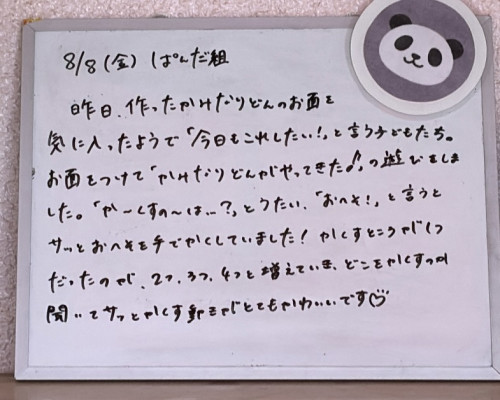 8/8(金) ぱんだ組
昨日、作ったかみなりどんのお面を
気に入ったようで「今日もこれしたい!」と言う子どもたち。
お面をつけて「かみなりどんがやってきた♪」の遊びをしま
した。「か〜くすの〜は…?」とうたい、「おへそ!」と言うと
サッとおへそを手でかくしていました! かくすところが1つ
だったのが、2つ、3つ、4つと増えていき、どこをかくすのか
聞いてサッとかくす動きがとてもかわいいです♡